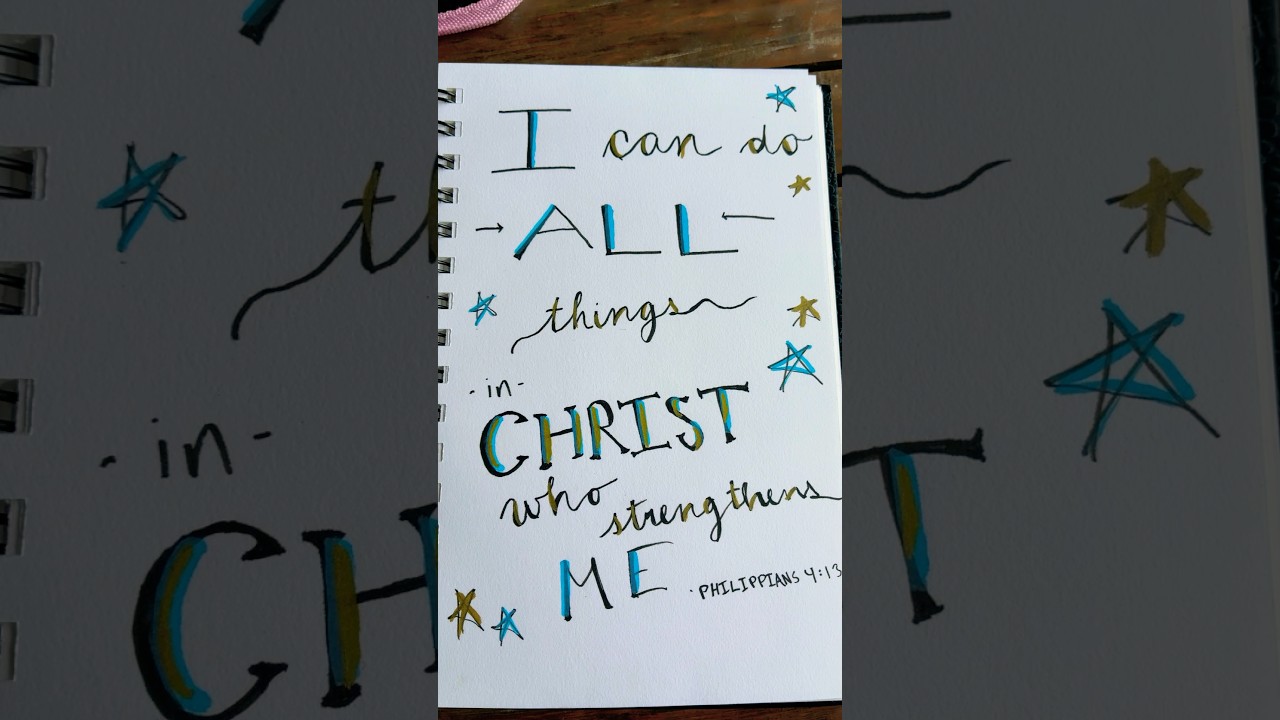 I can do
ALL
things
in
CHRIST
who strengthens
ME
PHILIPPIANS 4:13